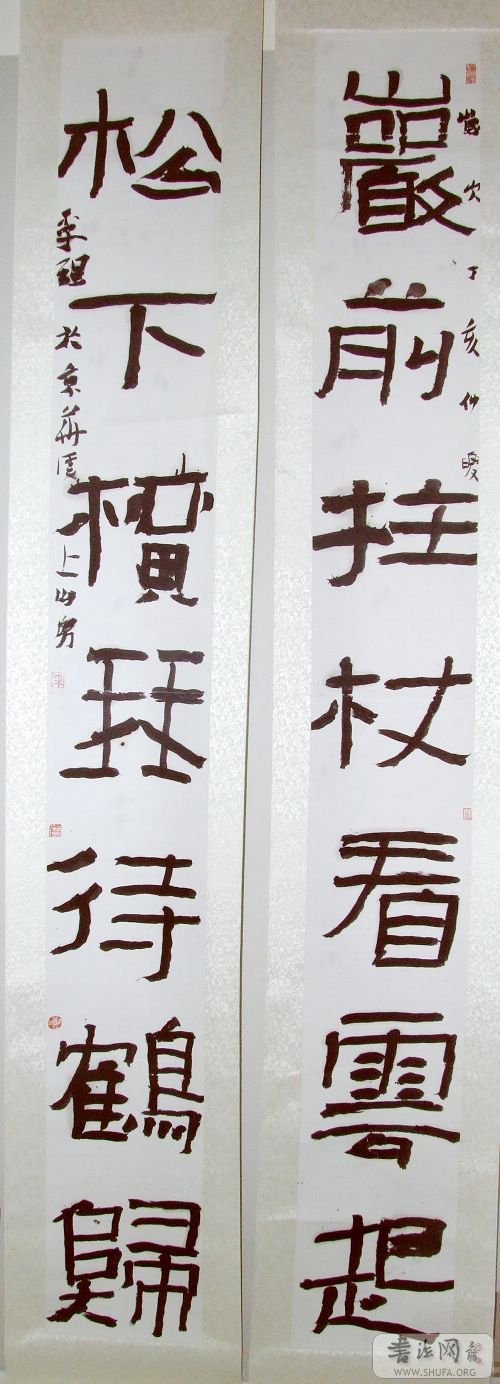 巖前拄杖看雲起
歲次丁亥仲暖
松下橫琴待鶴歸
於京華
上
書法网
WWW.SHUFA.ORG